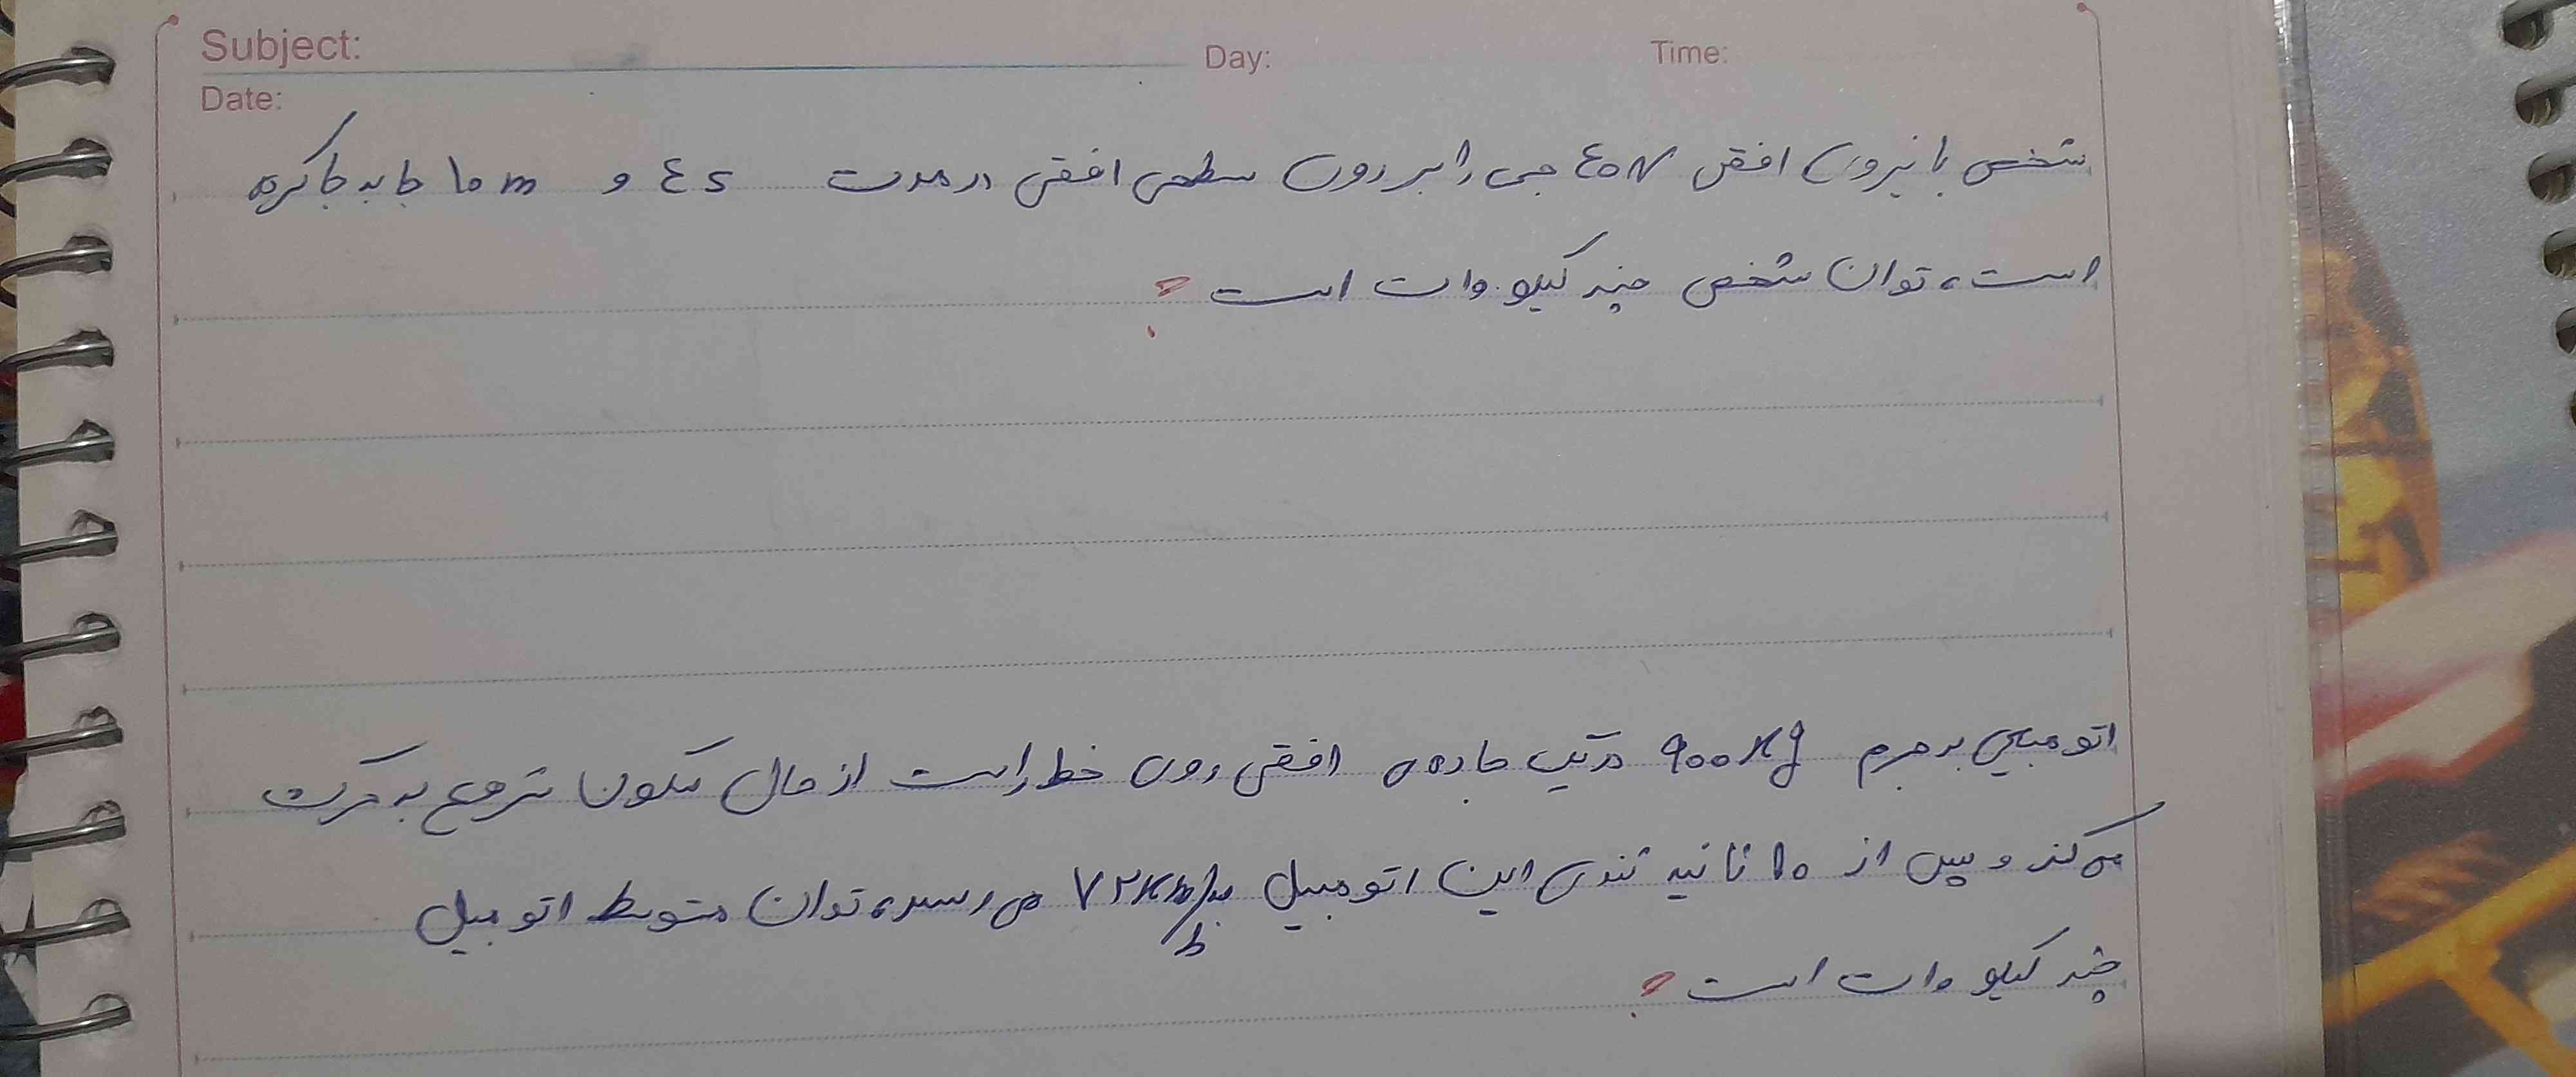 Subject:
Day:
Time:
Date:
شخصی با نیروی افقی ٤٠N جسمی را بر روی سطحی افقی در مدت ٤s و ١٠m جا به جا کرده
است، توان شخص چند کیلو وات است؟
اتومبیلی به جرم ٩٠٠Kg در یک جاده ی افقی روی خط راست از حال سکون شروع به حرکت
می کند و پس از ١٠ ثانیه تندی این اتومبیل به ٧٢Km/h می رسد، توان متوسط اتومبیل
چند کیلو وات است؟